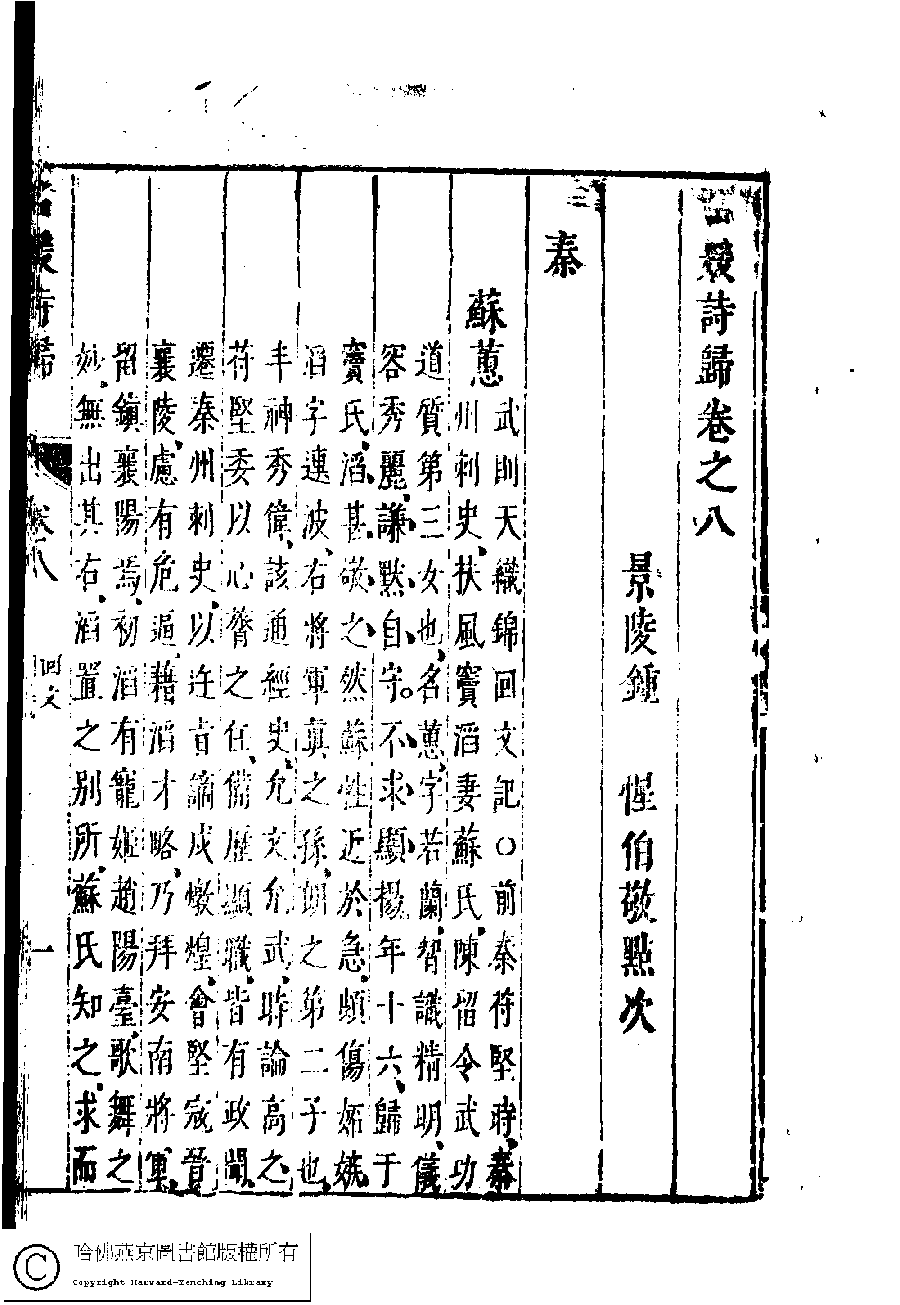 名媛詩歸卷之八
景陵鍾 惺伯敬點次
秦
蘇蕙
武則天織錦回文記○前秦苻堅時、秦
州刺史、扶風竇滔妻蘇氏、陳留令武功
道質第三女也、名蕙、字若蘭、智識精明、儀
容秀麗、謙默自守。不求顯揚、年十六、歸于
竇氏、滔甚敬之、然蘇性近於急、頗傷妬嫉、
滔字連波、右將軍真之孫、朗之第二子也、
丰神秀偉、該通經史、允文允武、時論高之、
苻堅委以心膂之任、備歷顯職、皆有政聞、
遷秦州刺史、以迕旨謫戍燉煌、會堅寇晉
襄陵、慮有危逼、藉滔才略、乃拜安南將軍、
留鎮襄陽焉、初滔有寵姬趙陽臺、歌舞之
妙、無出其右、滔置之別所、蘇氏知之、求而
名媛詩歸 卷八 回文 一
哈佛燕京圖書館版權所有
Copyright Harvard-Yenching Library